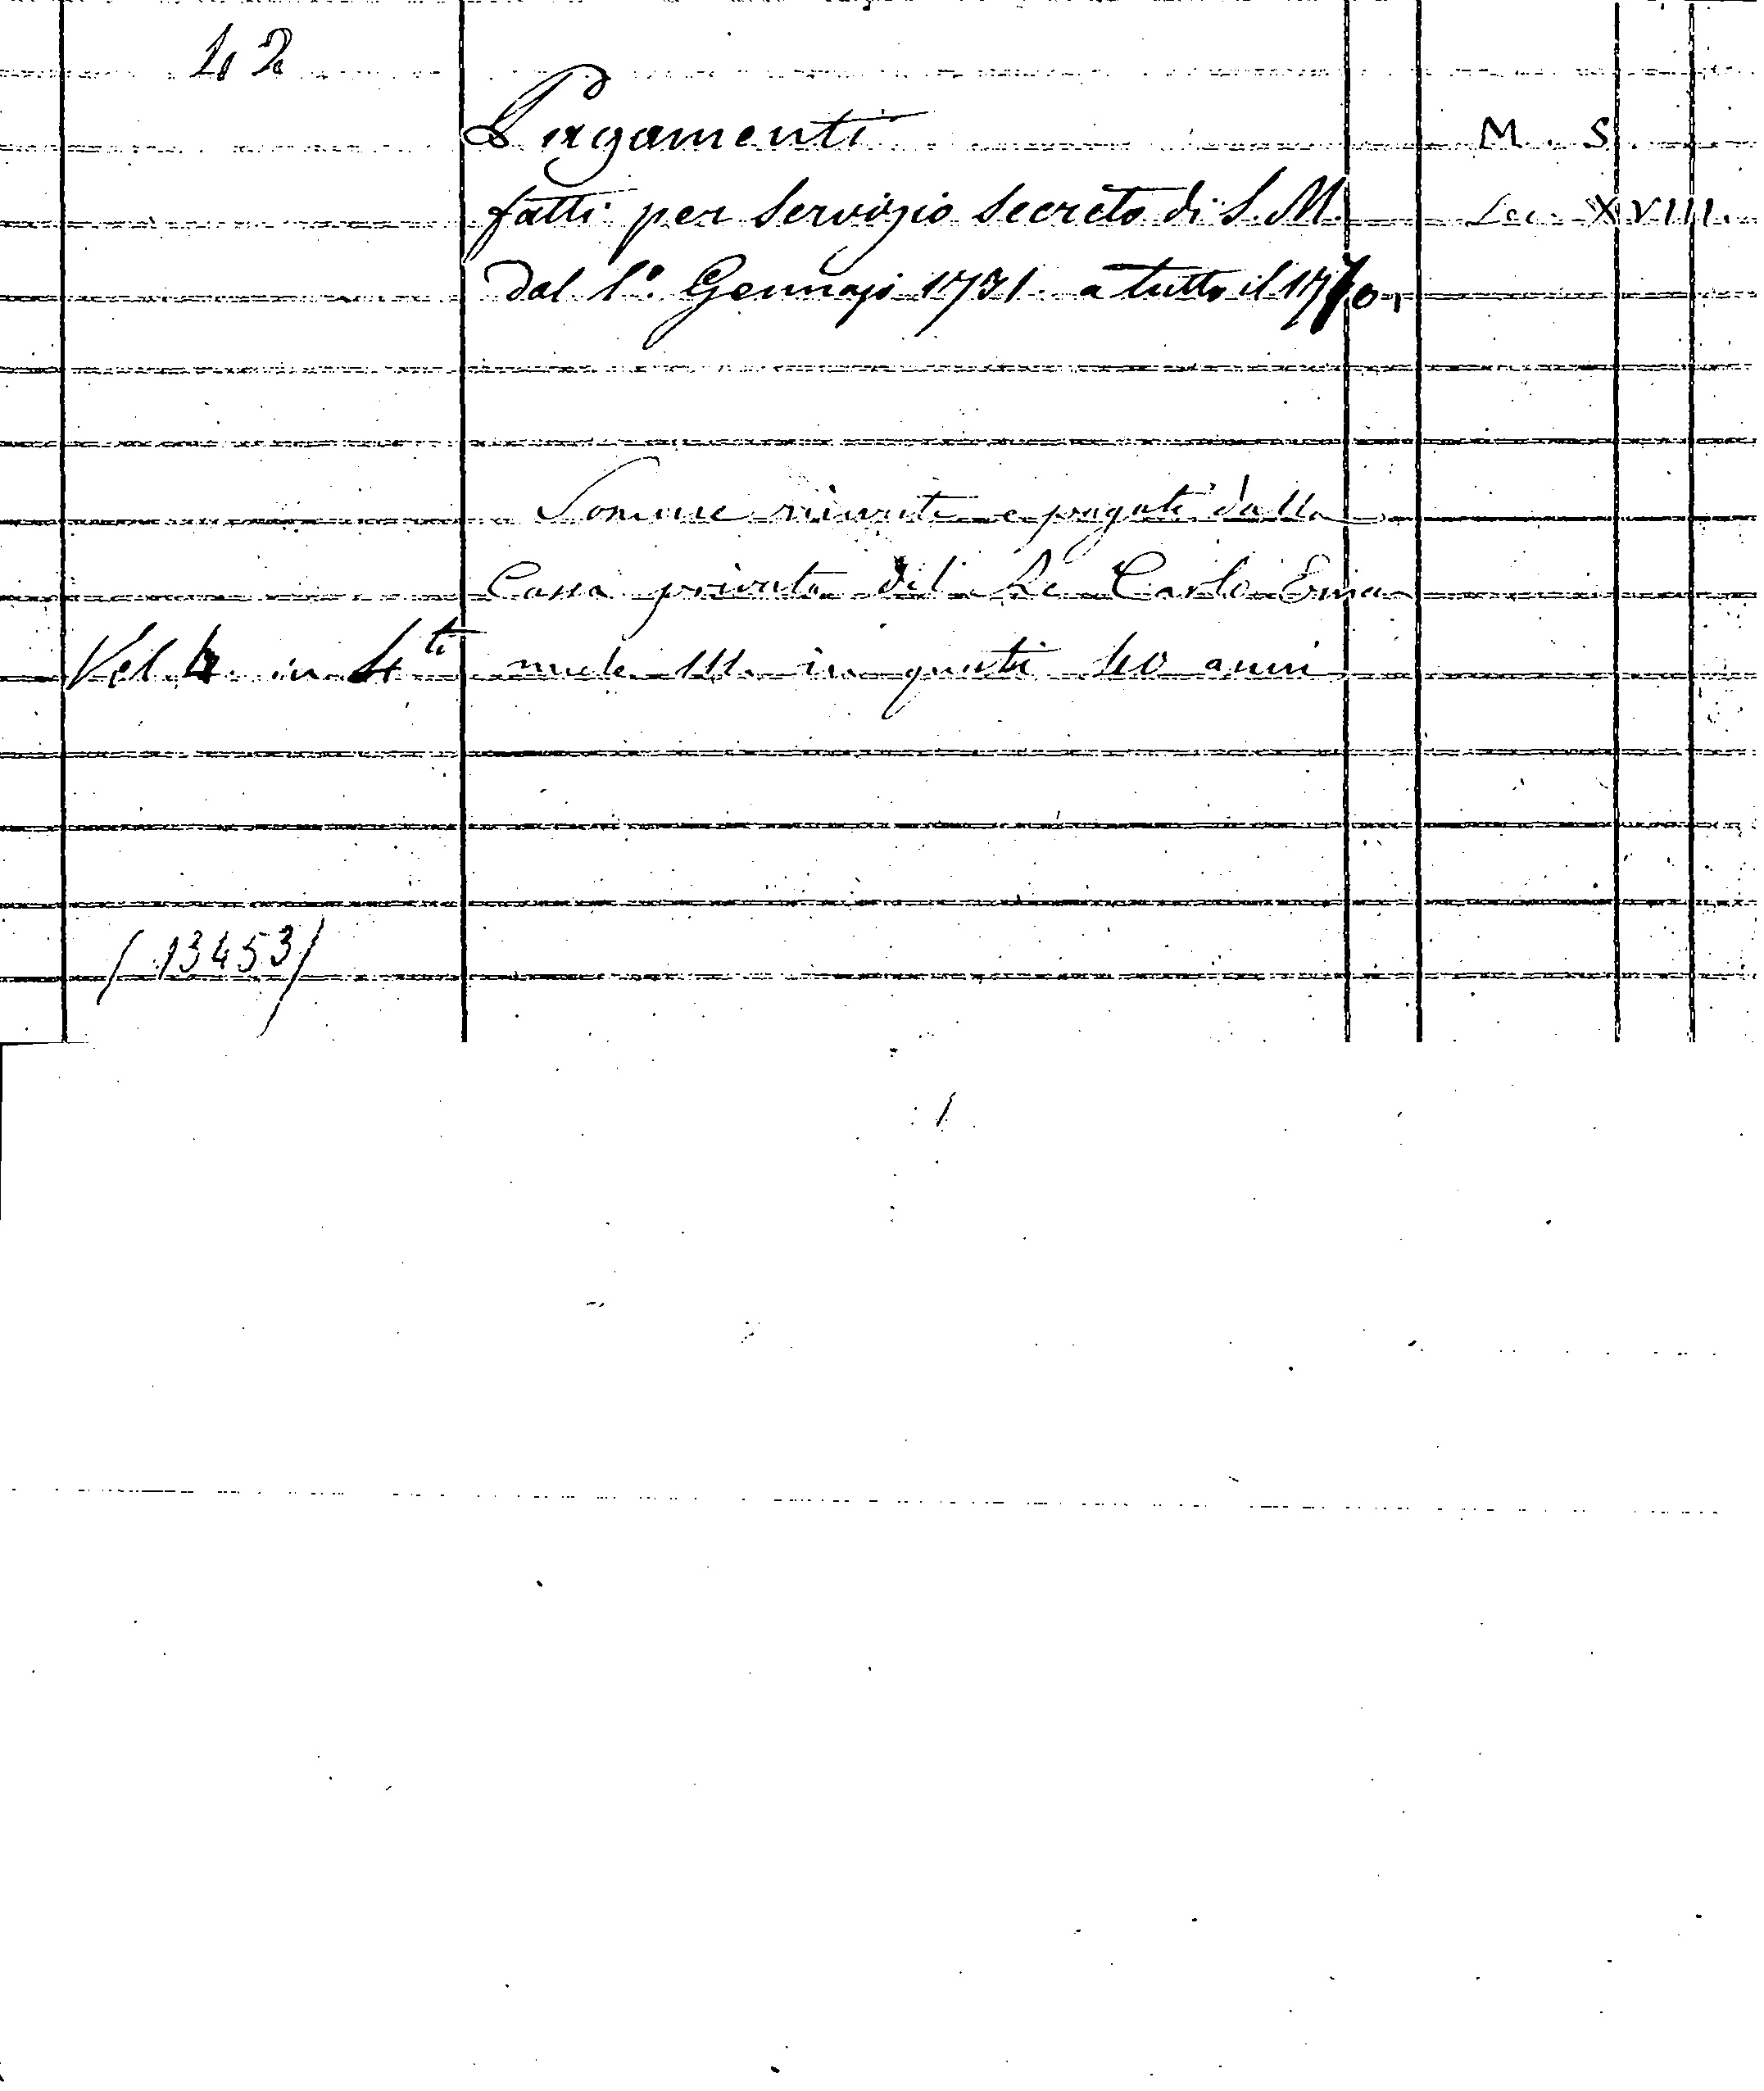 42
Pagamenti M. S.
fatti per Servizio Secreto di S. M. Sec. XVIII.
dal 1º. Gennajo 1731. a tutto il 1770.
Somme ricevute e pagate dalla
Cassa privata del Re Carlo Ema
Vol. 4. in 4to nuele III. in questi 40 anni
(13453)